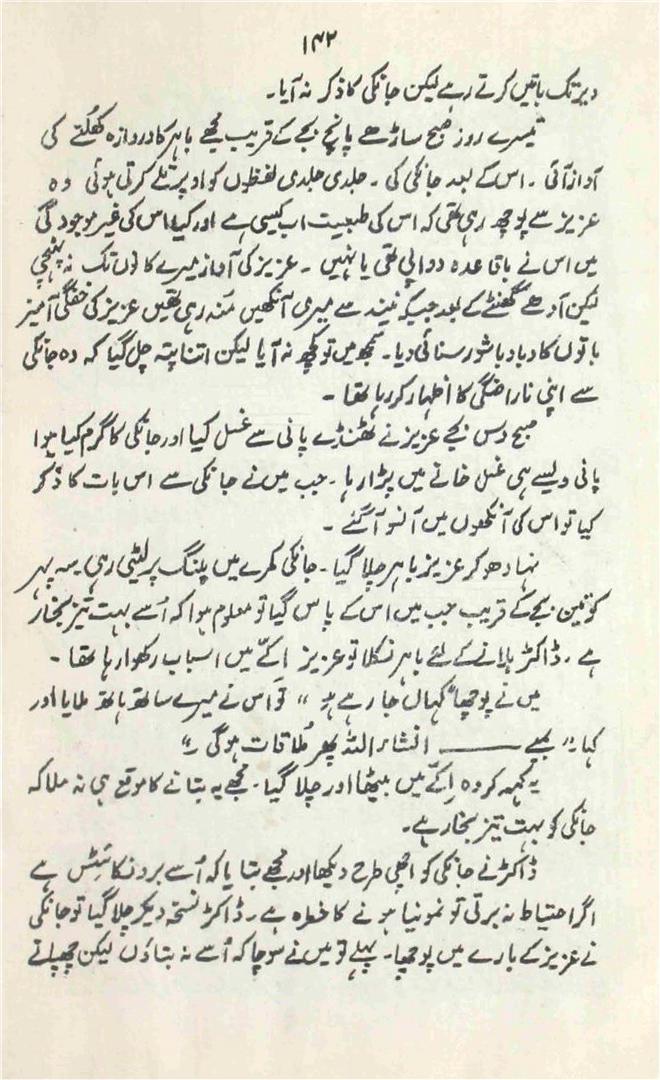 ۱۴۲
دیر تک باتیں کرتے رہے لیکن جانکی کا ذکر نہ آیا۔
تیسرے روز صبح ساڑھے پانچ بجے کے قریب مجھے باہر کا دروازہ کھُلنے کی
آواز آئی ۔ اس کے بعد جانکی کی ۔ جلدی جلدی لفظوں کو اوپر تلے کرتی ہوئی وہ
عزیز سے پوچھ رہی تھی کہ اس کی طبیعت اب کیسی ہے اور کیا اس کی غیر موجودگی
میں اس نے باقاعدہ دوا پی تھی یا نہیں ۔ عزیز کی آواز میرے کانوں تک نہ پہنچی
لیکن آدھے گھنٹے کے بعد جبکہ نیند سے میری آنکھیں مُند رہی تھیں عزیز کی خفگی آمیز
باتوں کا دبا دبا شور سنائی دیا۔ سمجھ میں تو کچھ نہ آیا لیکن اتنا پتہ چل گیا کہ وہ جانکی
سے اپنی ناراضگی کا اظہار کر رہا تھا ۔
صبح دس بجے عزیز نے ٹھنڈے پانی سے غسل کیا اور جانکی کا گرم کیا ہوا
پانی ویسے ہی غسل خانے میں پڑا رہا ۔ جب میں نے جانکی سے اس بات کا ذکر
کیا تو اس کی آنکھوں میں آنسو آ گئے ۔
نہا دھو کر عزیز باہر چلا گیا ۔ جانکی کمرے میں پلنگ پر لیٹی رہی ۔ سہ پہر
کو تین بجے کے قریب جب میں اس کے پاس گیا تو معلوم ہوا کہ اُسے بہت تیز بخار
ہے ۔ ڈاکٹر بلانے کے لئے باہر نکلا تو عزیز اکّے میں اسباب رکھوا رہا تھا ۔
میں نے پوچھا "کہاں جا رہے ہو" تو اُس نے میرے ساتھ ہاتھ ملایا اور
کہا: "بمبے ——— انشاء اللہ پھر مُلاقات ہوگی ۔"
یہ کہہ کر وہ اِکّے میں بیٹھا اور چلا گیا ۔ مجھے یہ بتانے کا موقع ہی نہ ملا کہ
جانکی کو بہت تیز بخار ہے۔
ڈاکٹر نے جانکی کو اچھی طرح دیکھا اور مجھے بتایا کہ اُسے برونکائٹس ہے
اگر احتیاط نہ برتی تو نمونیا ہونے کا خطرہ ہے ۔ ڈاکٹر نسخہ دیکر چلا گیا تو جانکی
نے عزیز کے بارے میں پوچھا ۔ پہلے تو میں نے سوچا کہ اُسے نہ بتاؤں لیکن چھپانے